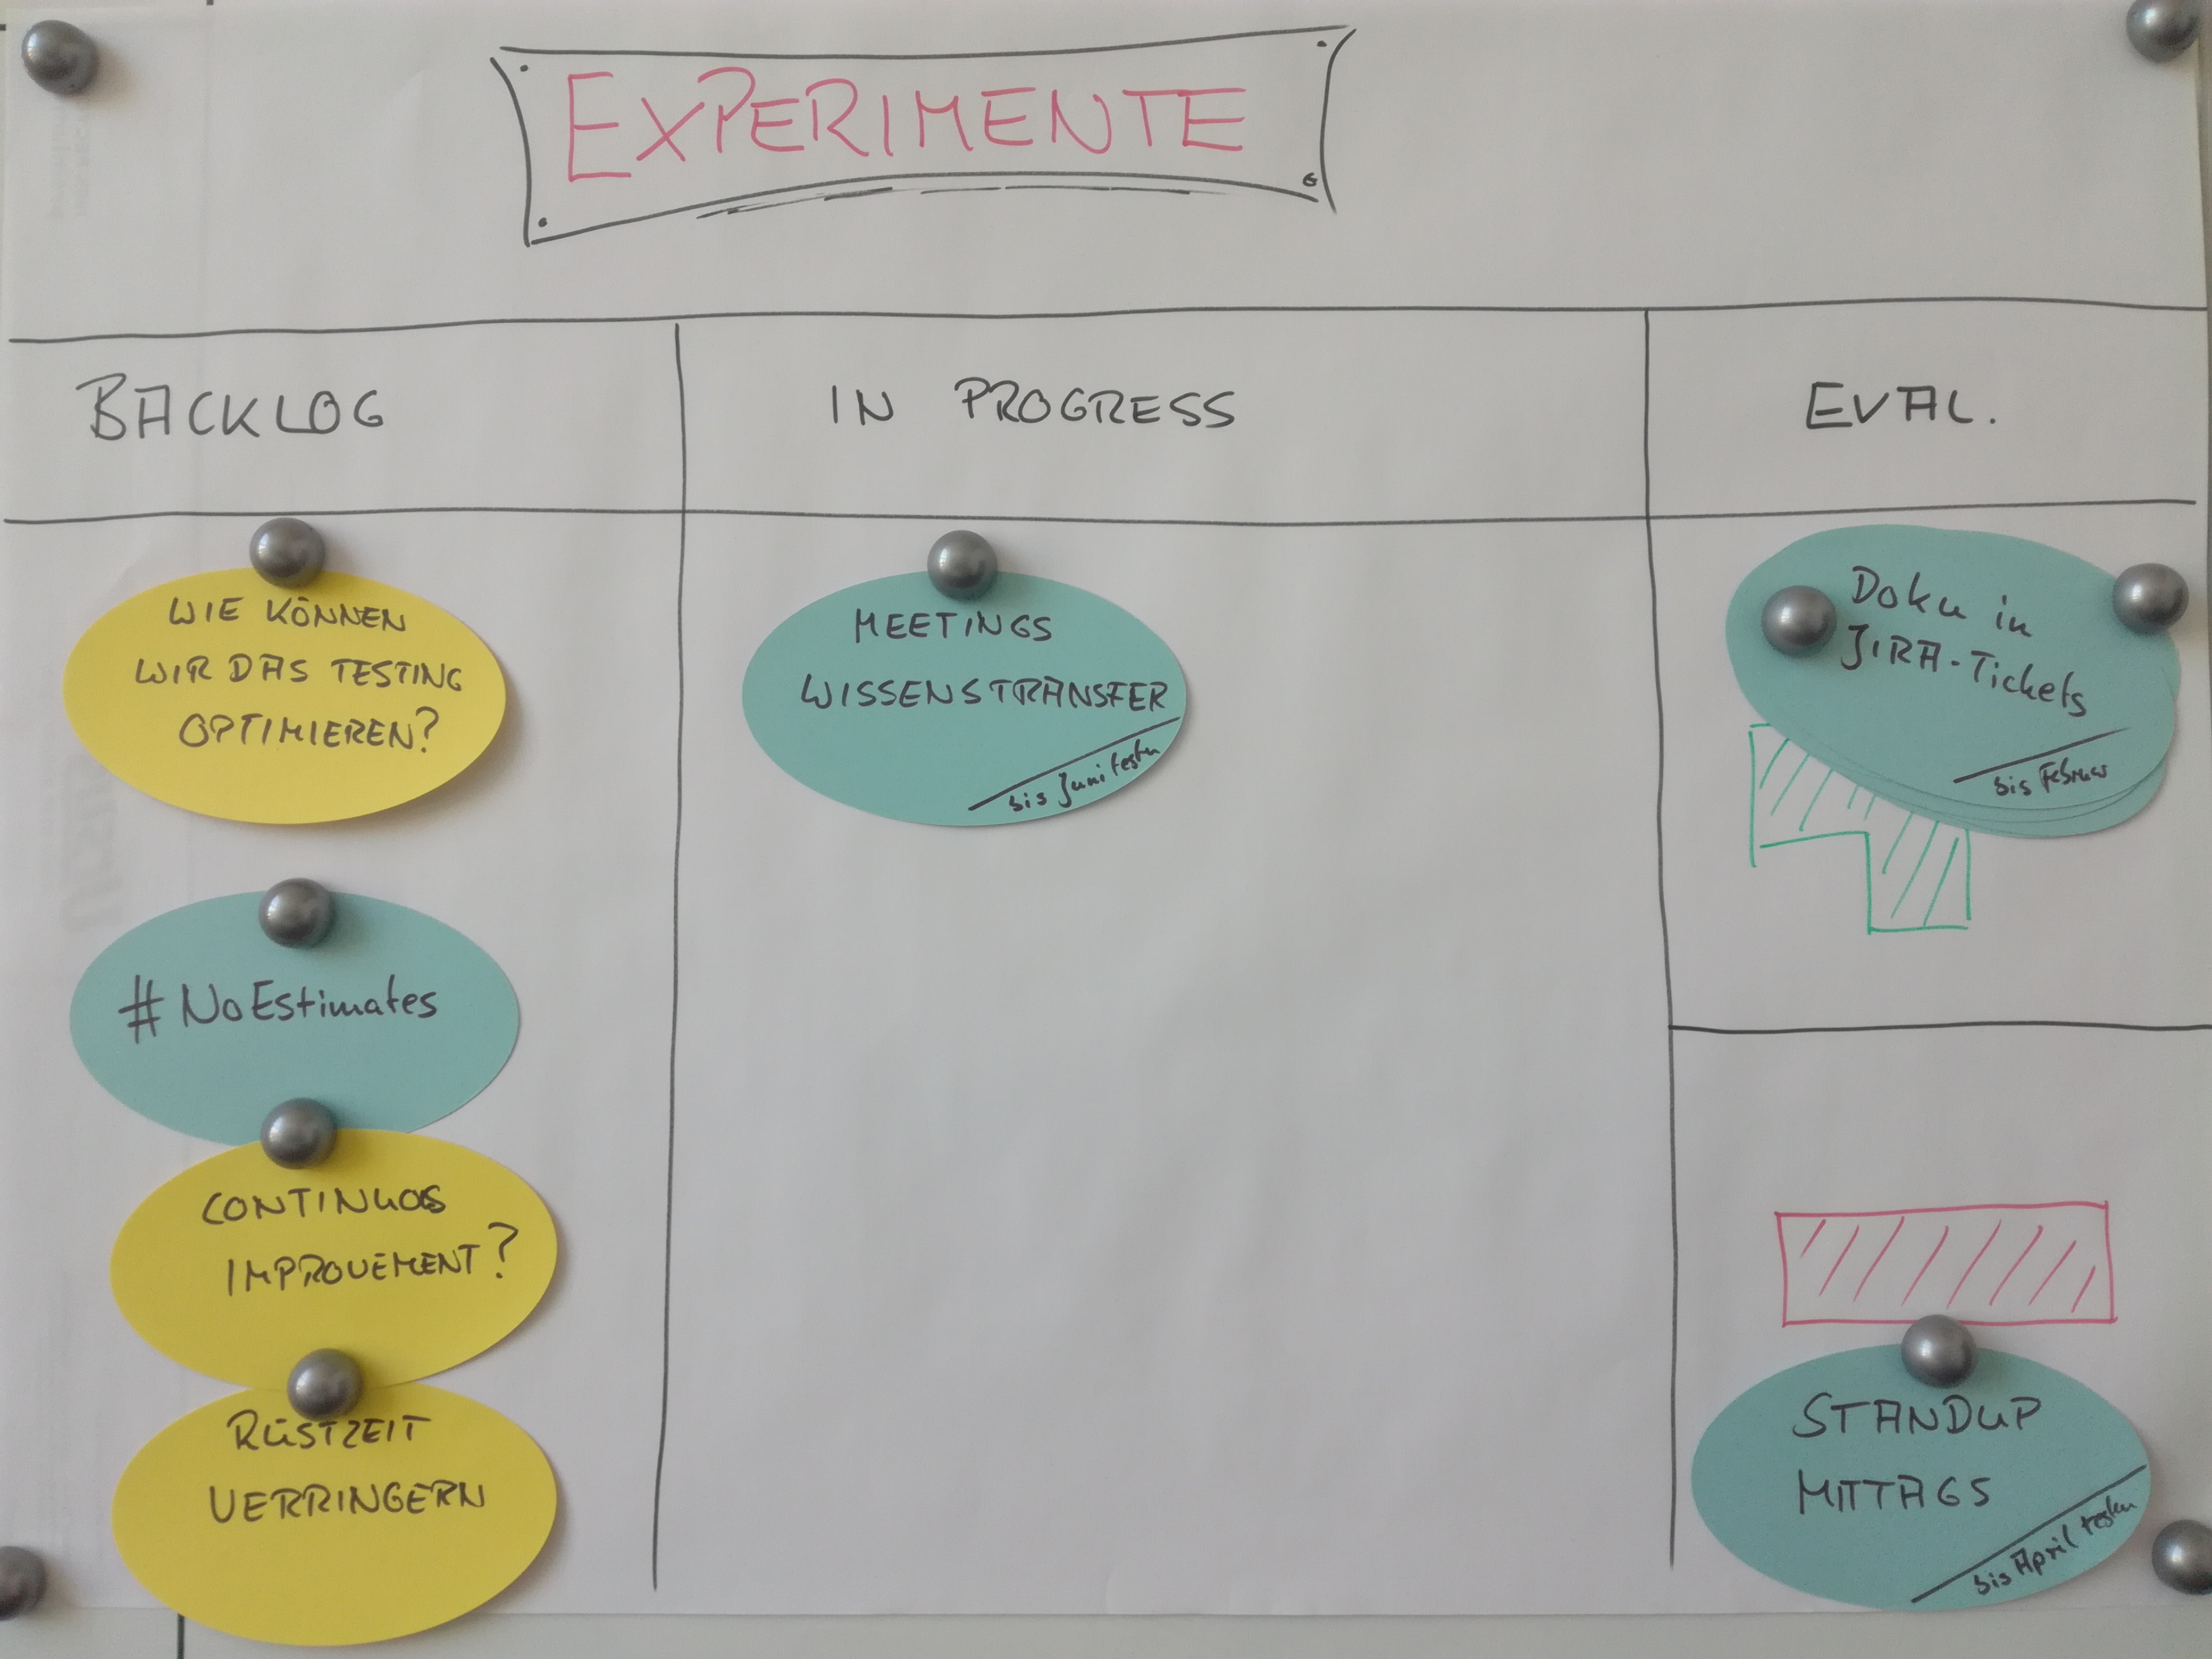 EXPERIMENTE
BACKLOG
IN PROGRESS
EVAL.
WIE KÖNNEN
WIR DAS TESTING
OPTIMIEREN?
#NoEstimates
CONTINUOS
IMPROVEMENT?
RÜSTZEIT
VERRINGERN
MEETINGS
WISSENSTRANSFER
bis Juni testen
Doku in
JIRA-Tickets
bis Februar
STANDUP
MITTAGS
bis April testen